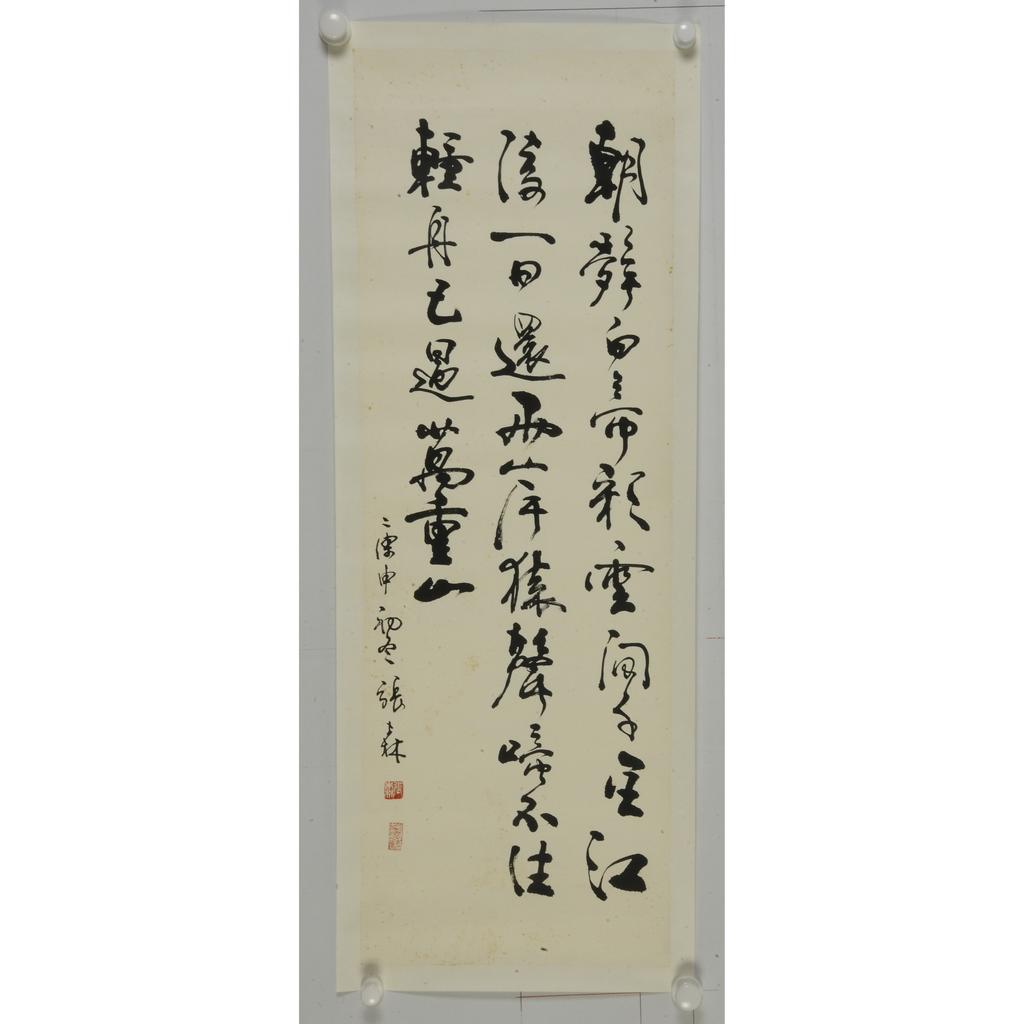 朝辭白帝彩雲間千里江
陵一日還兩岸猿聲啼不住
輕舟已過萬重山
庚申初冬張森